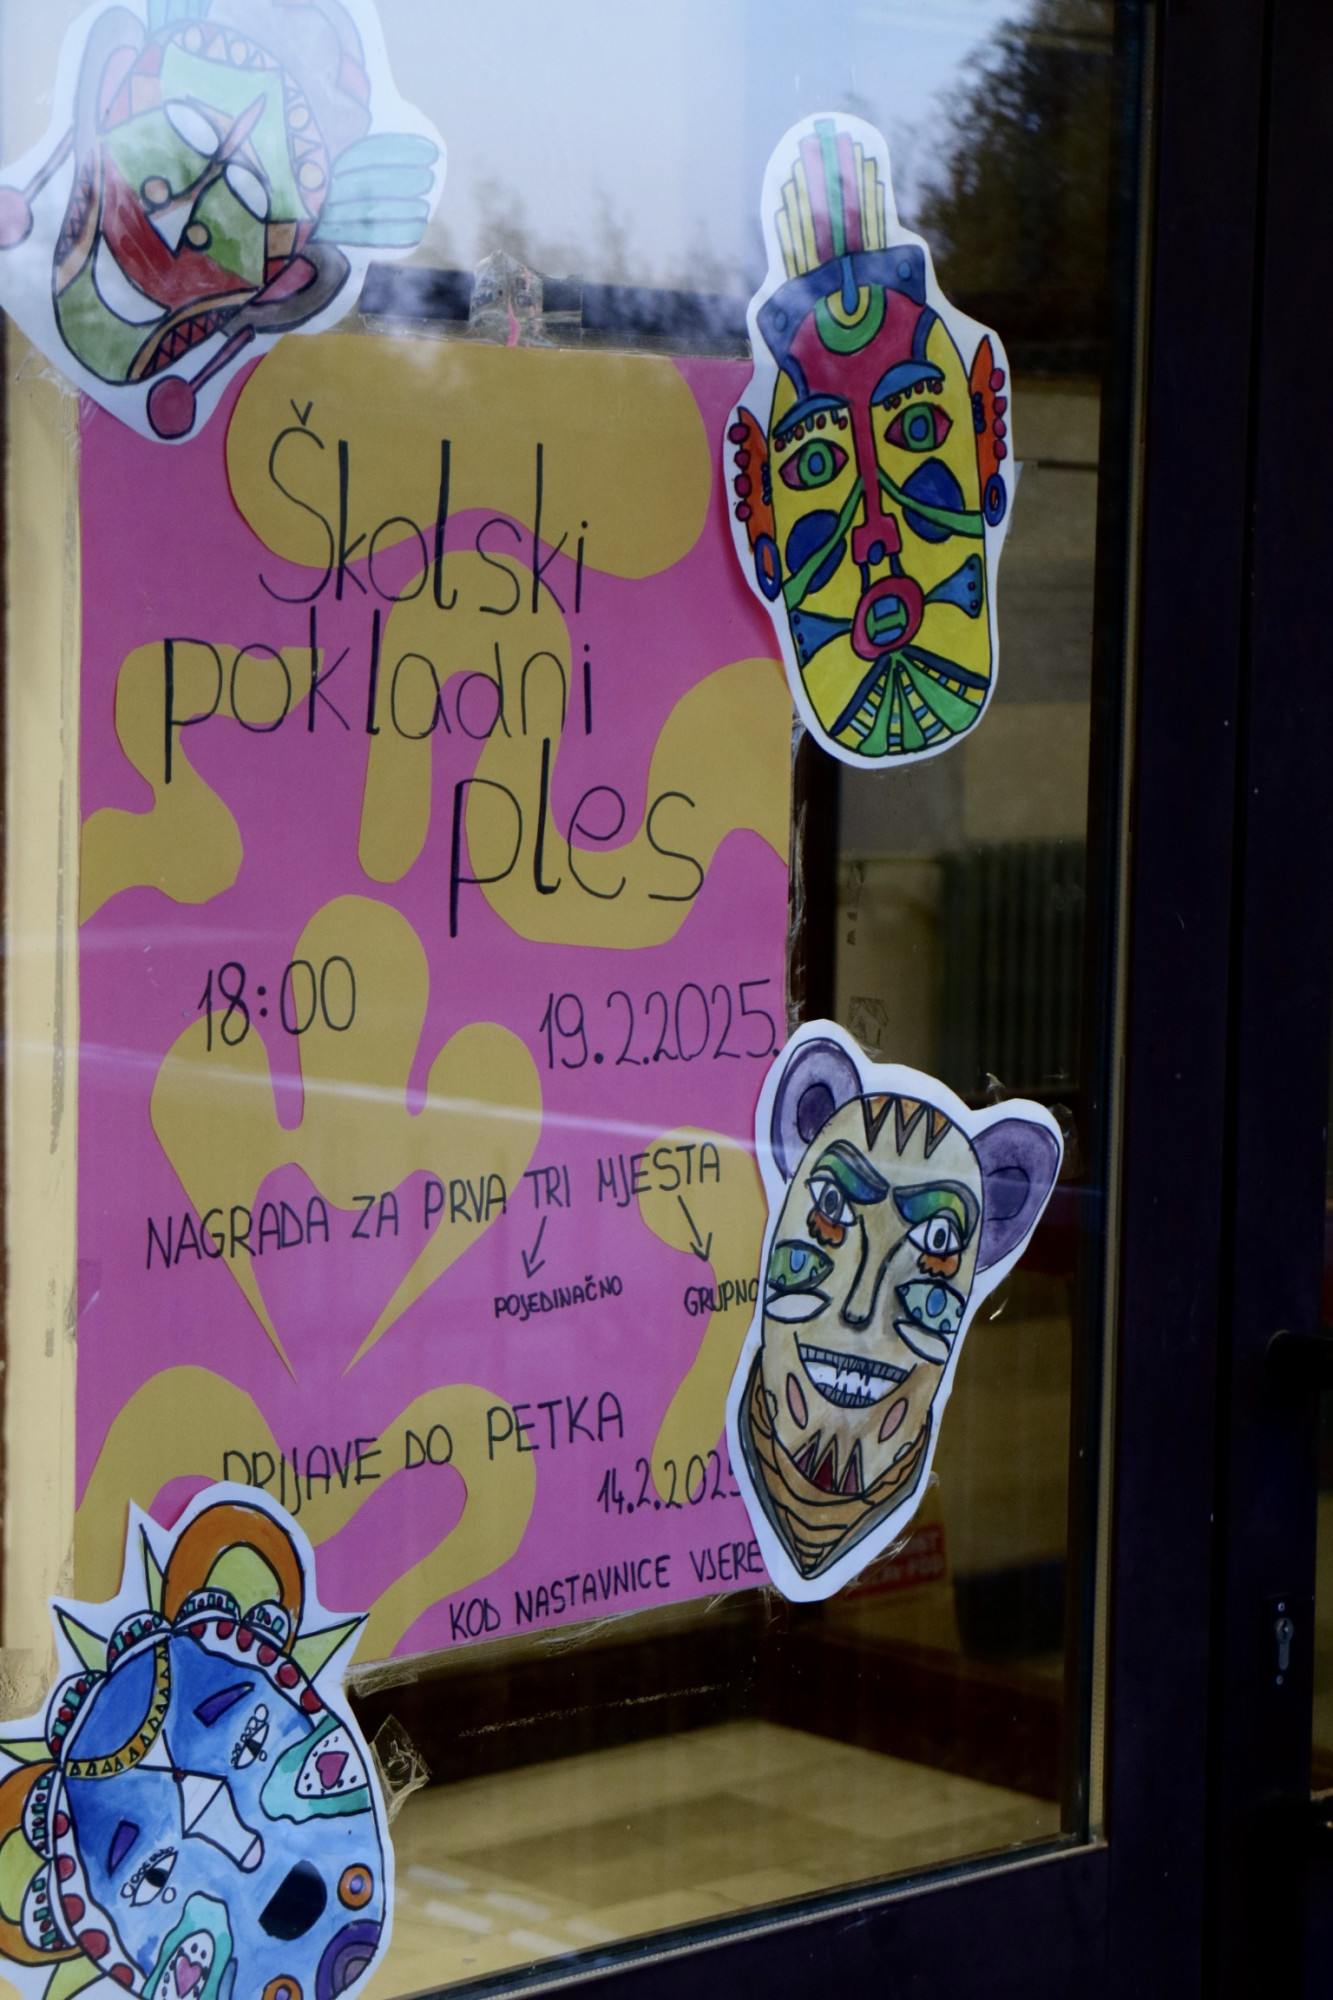 Školski
pokladni
ples
18:00
19.2.2025.
NAGRADA ZA PRVA TRI MJESTA
POJEDINAČNO
GRUPNO
PRIJAVE DO PETKA
14.2.2025
KOD NASTAVNICE VJERE